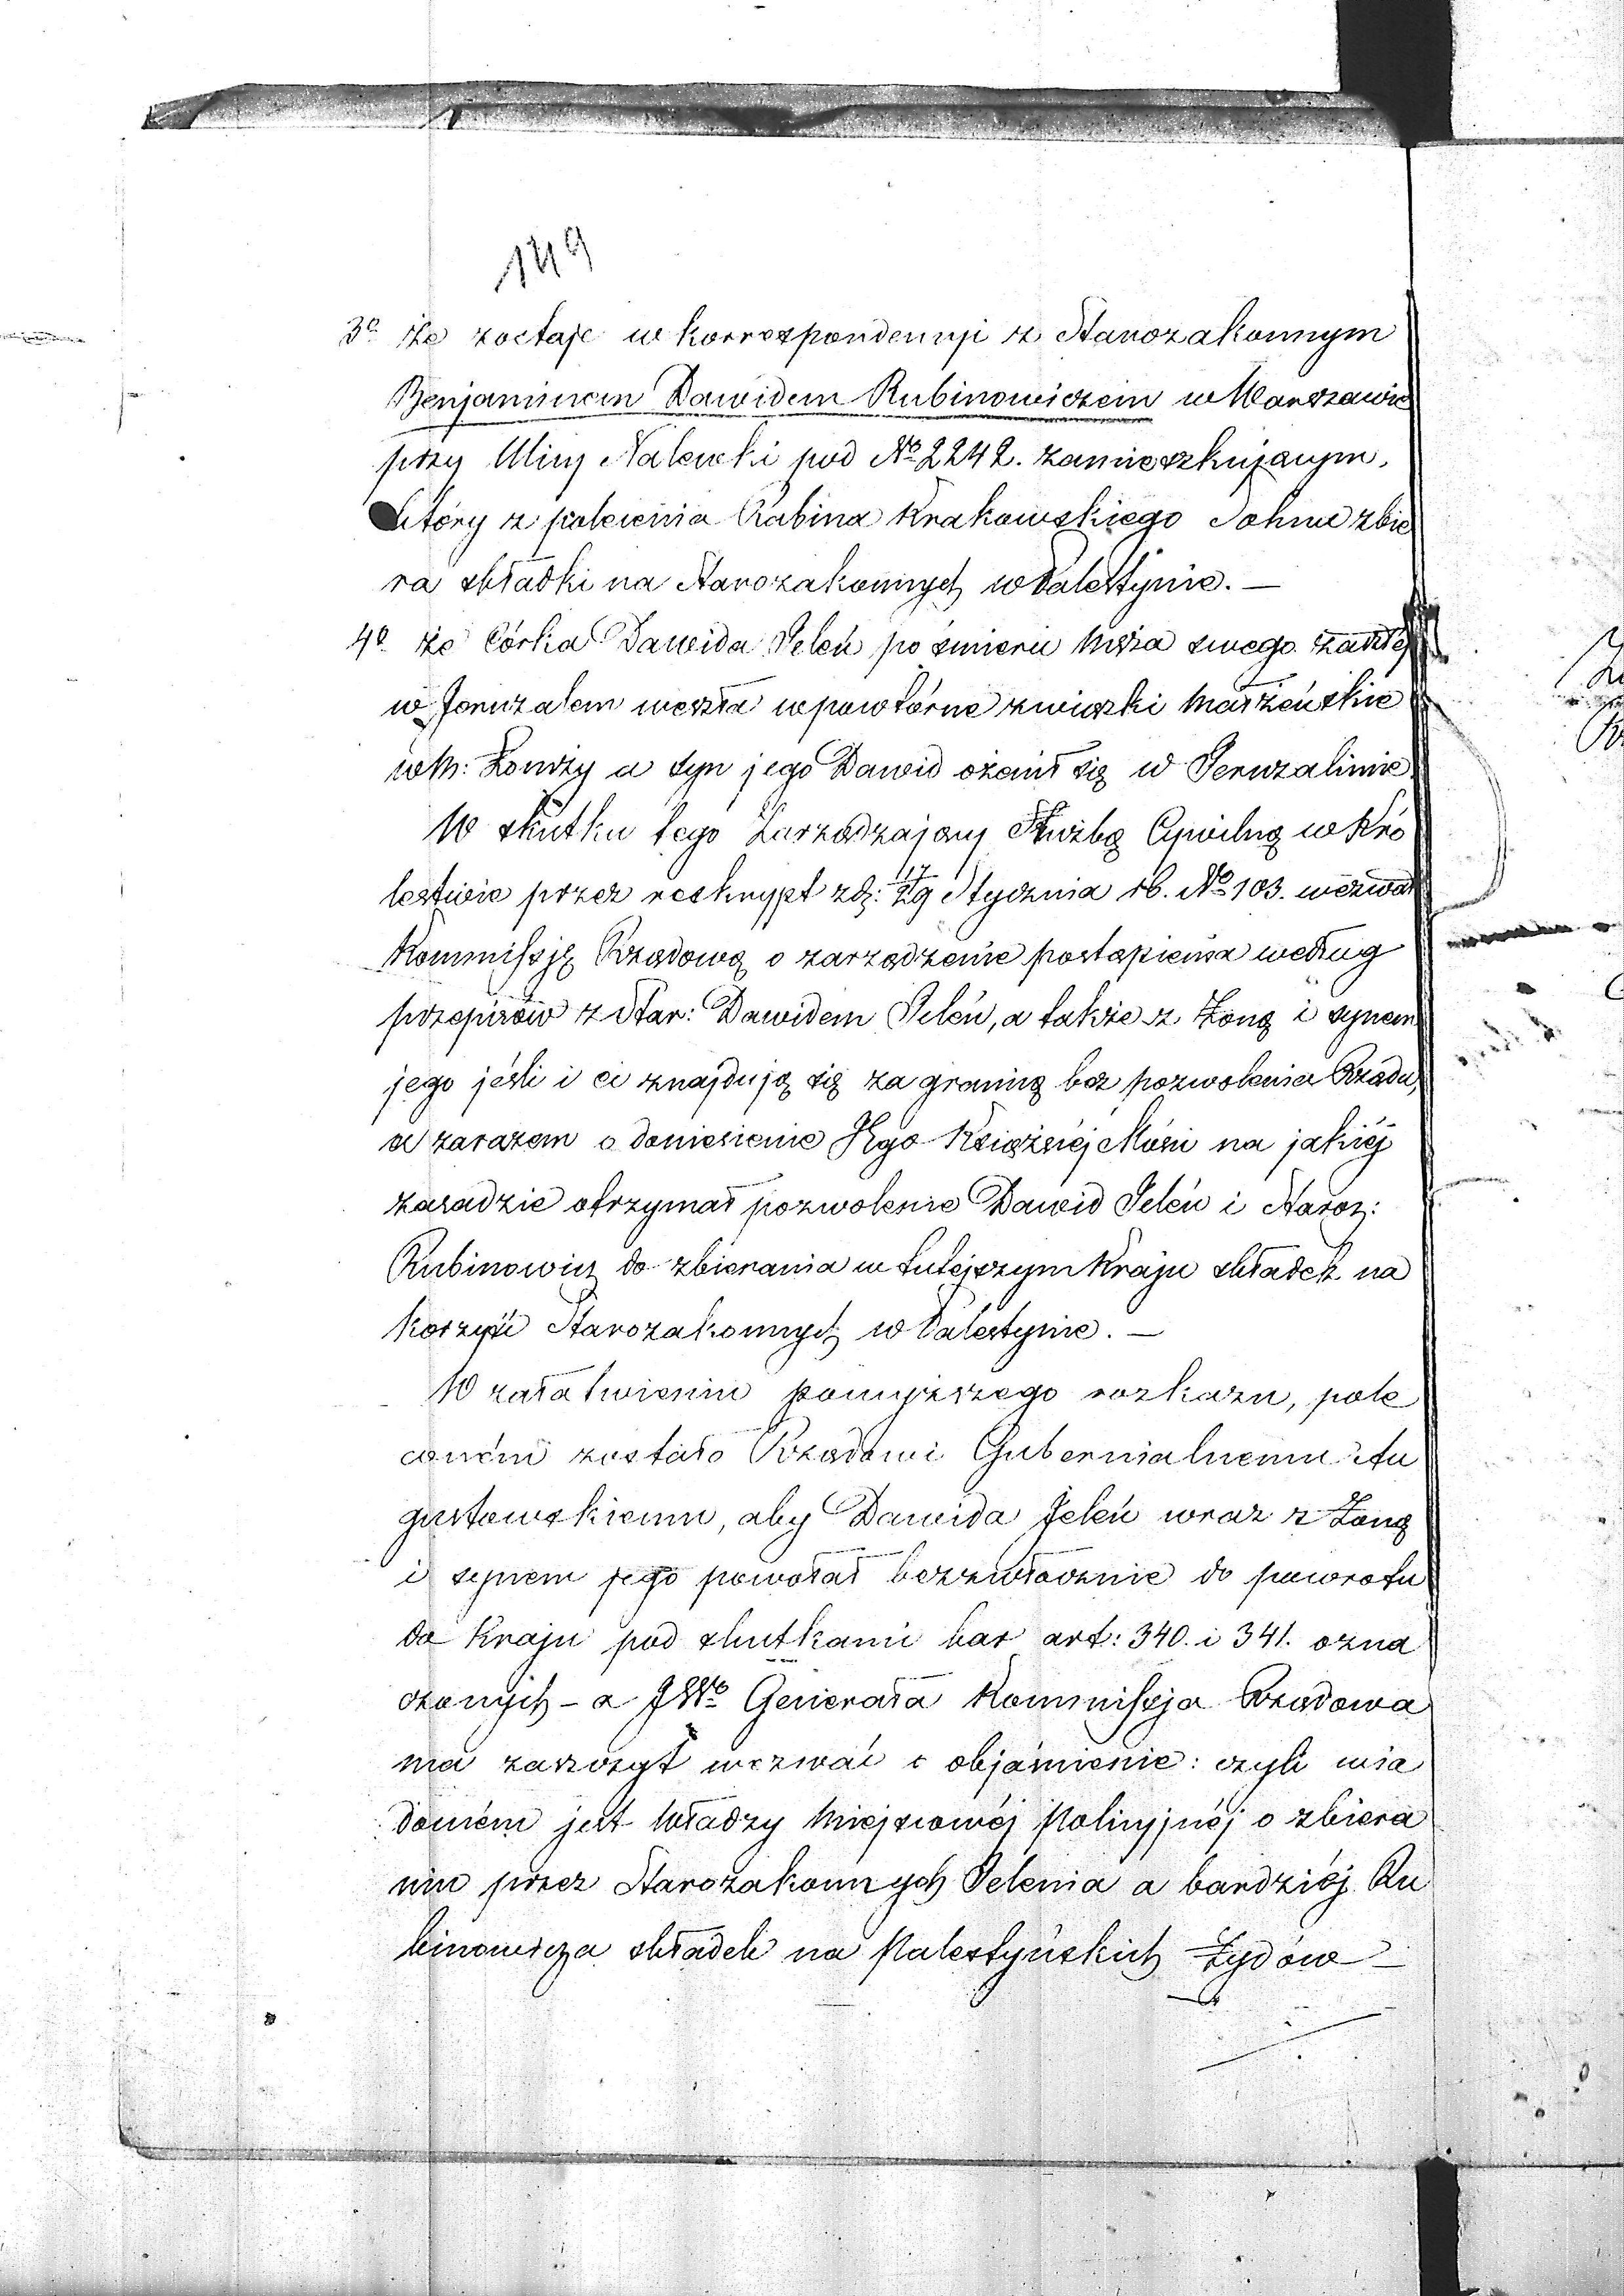 149
3o że zostaje w korrespondencyi z Starozakonnym
Benjaminem Dawidem Rubinowiczem w Warszawie
przy Ulicy Nalewki pod No 2242. zamieszkującym,
który z polecenia Rabina Krakowskiego zbie
ra składki na Starozakonnych w Palestynie. —
4o że Córka Dawida Jeleń po śmierci Męża swego zaszłéj
w Jeruzalem weszła w powtórne związki Małżeńskie
w M: Łomży a syn jego Dawid ożenił się w Jeruzalimie.
W skutku tego Zarządzający Służbą Cywilną w Kró
lestwie przez reskrypt z d: 17/29 Stycznia rb. No 103. wezwał
Kommissję Rządową o zarządzenie postąpienia według
przepisów z Star: Dawidem Jeleń, a także z Żoną i synem
jego jeśli i ci znajdują się za granicą bez pozwolenia Rządu,
a zarazem o doniesienie Jego Książęcéj Mości na jakiéj
zasadzie otrzymał pozwolenie Dawid Jeleń i Staroz:
Rubinowicz do zbierania w tutejszym Kraju składek na
korzyść Starozakonnych w Palestynie. —
W załatwieniu powyższego rozkazu, pole
coném zostało Rządowi Gubernialnemu Au
gustowskiemu, aby Dawida Jeleń wraz z Żoną
i synem jego powołał bezzwłocznie do powrotu
do Kraju pod skutkami kar art: 340. i 341. ozna
czonych – a JWo Generała Kommissja Rządowa
ma zaszczyt wezwać o objaśnienie: czyli wia
domém jest Władzy Miejscowéj Policyjnéj o zbiera
niu przez Starozakonnych Jelenia a bardziéj Ru
binowicza składek na Palestyńskich Żydów —